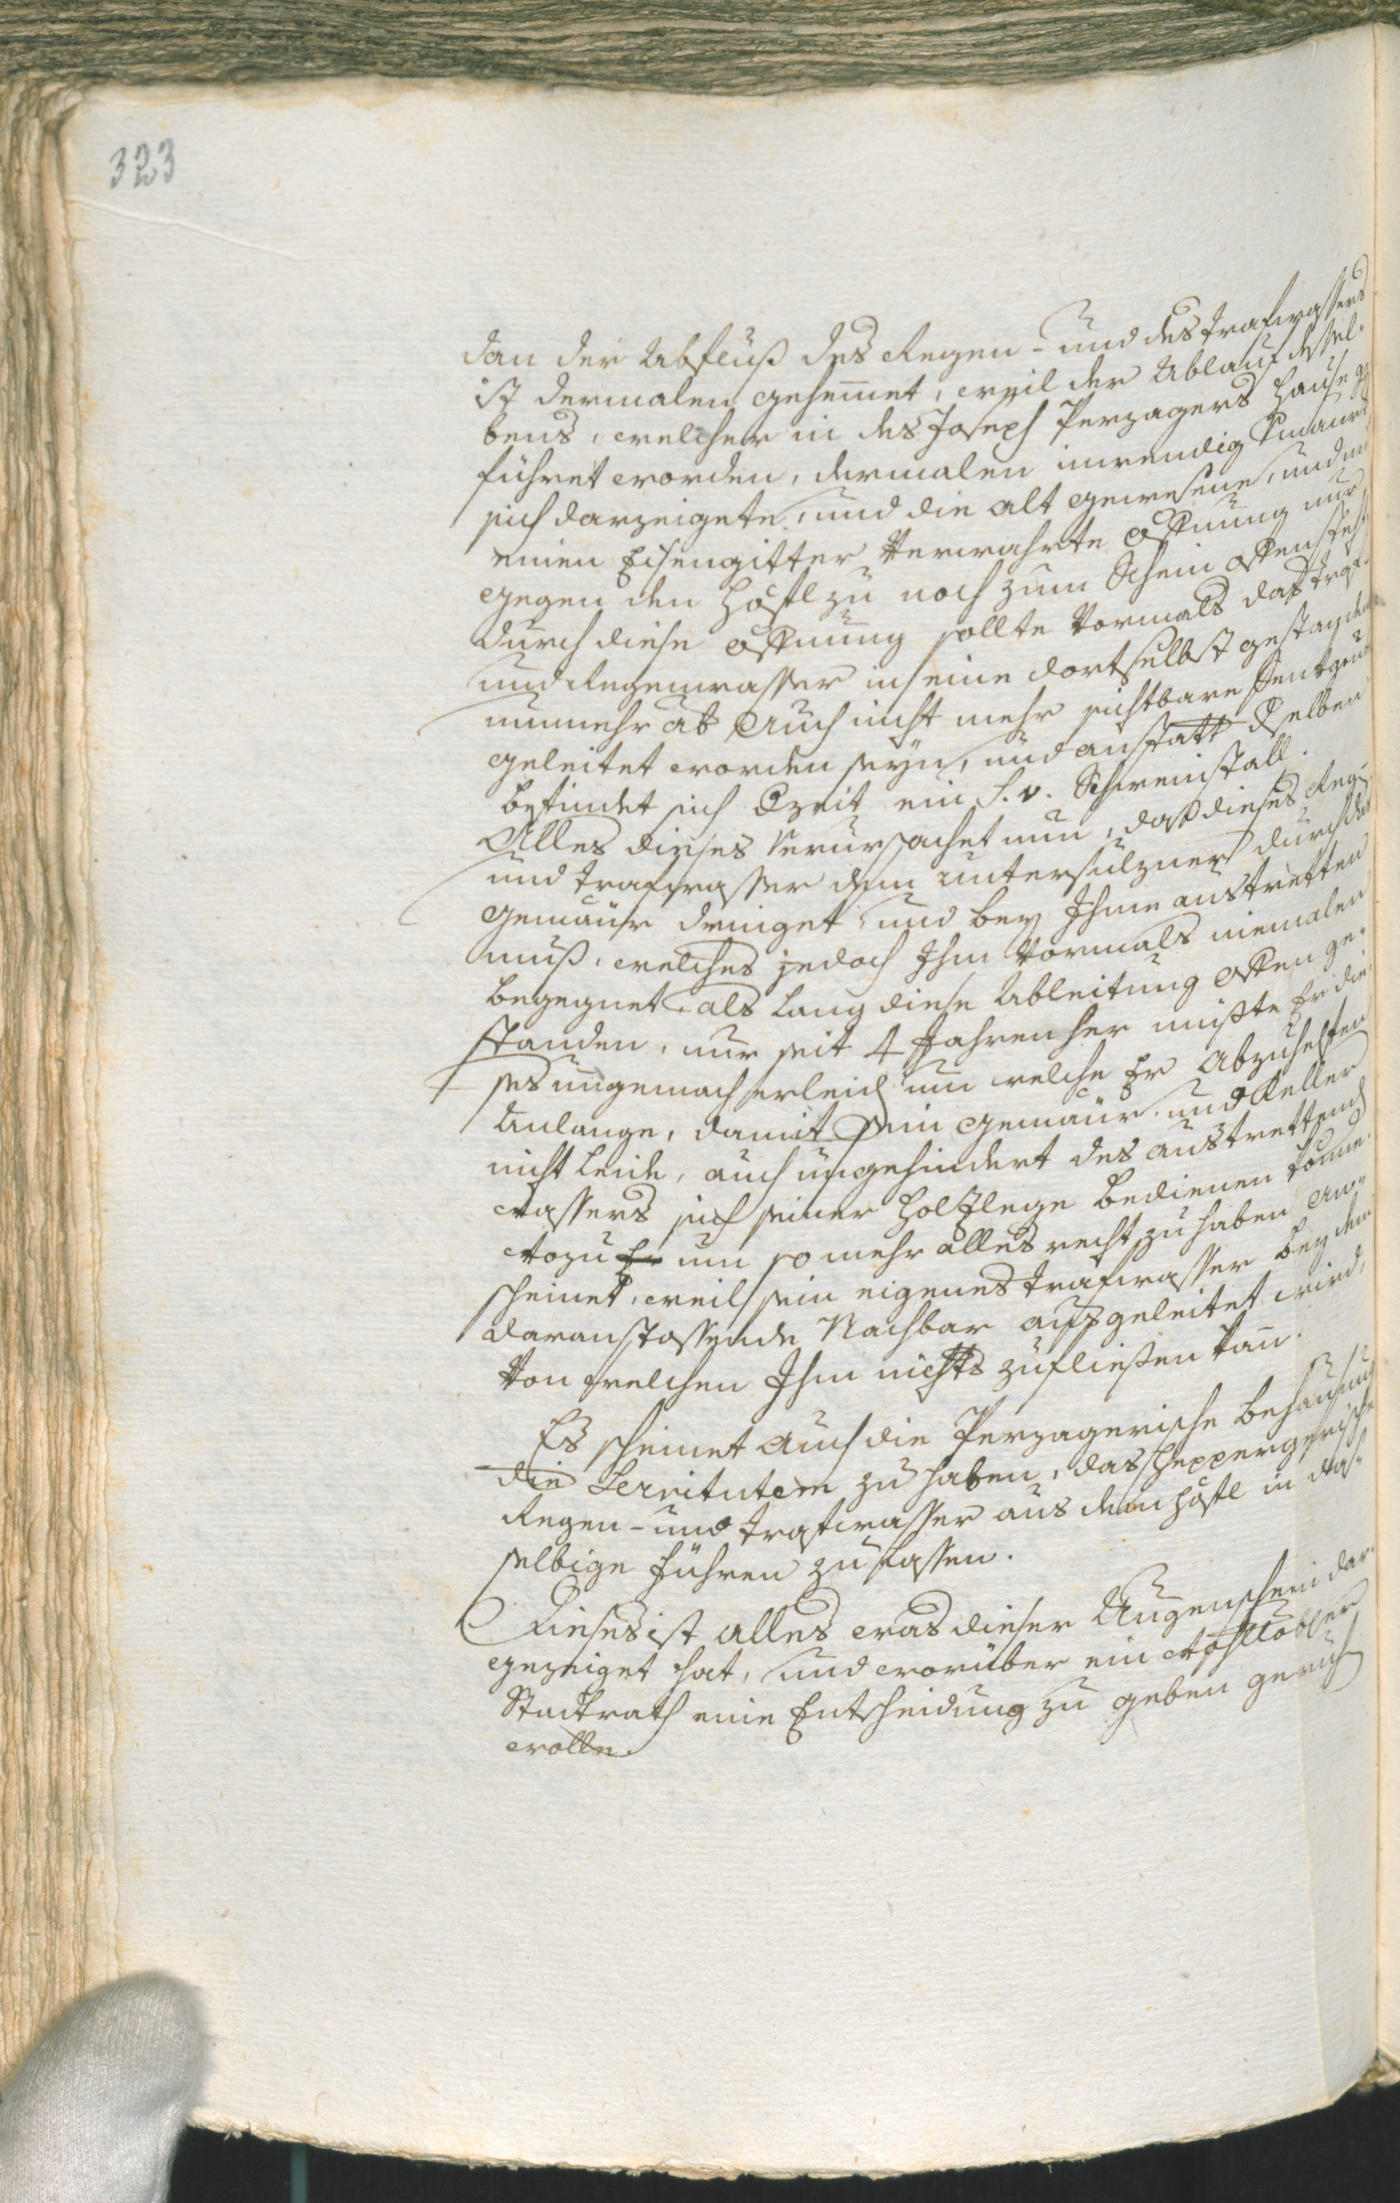 323
dan der Abfluß des Regen- und des trafwassers
ist dermalen gehemet, weil der Ablauf dessel-
bens, welcher in des Joseph Perzagers Hause ge
führet worden, dermalen inwendig vmaurt
sich darzeigete, und die alt gewesene, und mit
einen Eisengitter Verwahrte öffnung nur
gegen den höfl zu noch zum Schein offen steht
durch diese öffnung sollte Vormals das traf-
und Regenwasser in eine dortselbst gestanden
nunmehr ab auch nicht mehr sichtbare Senkgrub
geleitet worden seyn, und anstatt dselben
befindet sich dzeit ein S. v. Schweinstall.
Alles dieses Verursachet nun, daß dieses Regen
und trafwasser dem Untersulzner durch das
gemäur dringet und bey Ihme austretten
muß, welches jedoch Ihm Vormals niemalen
begegnet, als lang diese Ableitung offen ge-
standen, nur seit 4 Jahren her müßte Er die-
ses ungemach erleid um welche Er Abzuhelfen
Anlange, damit sein gemäur und Keller
nicht leide, auch ungehindert des austrettend
Wassers sich seiner Holzlege bedienen könne
Wozu Er um so mehr alles recht zu haben an-
scheinet, weil sein eigenes trafwasser bey dem
daranstossende Nachbar aufgeleitet wird,
Von welchen Ihm nichts zufließen kan.
Es scheinet auch die Perzagerische behausung
die Servitutem zu haben, das Heppergerische
Regen- und trafwasser aus dem höfl in das-
selbige führen zu lassen.
Dieses ist alles was dieser Augenschein dar-
gezeiget hat, und worüber ein Wohllobler
Stadtrath eine Entscheidung zu geben geruh
wolle.